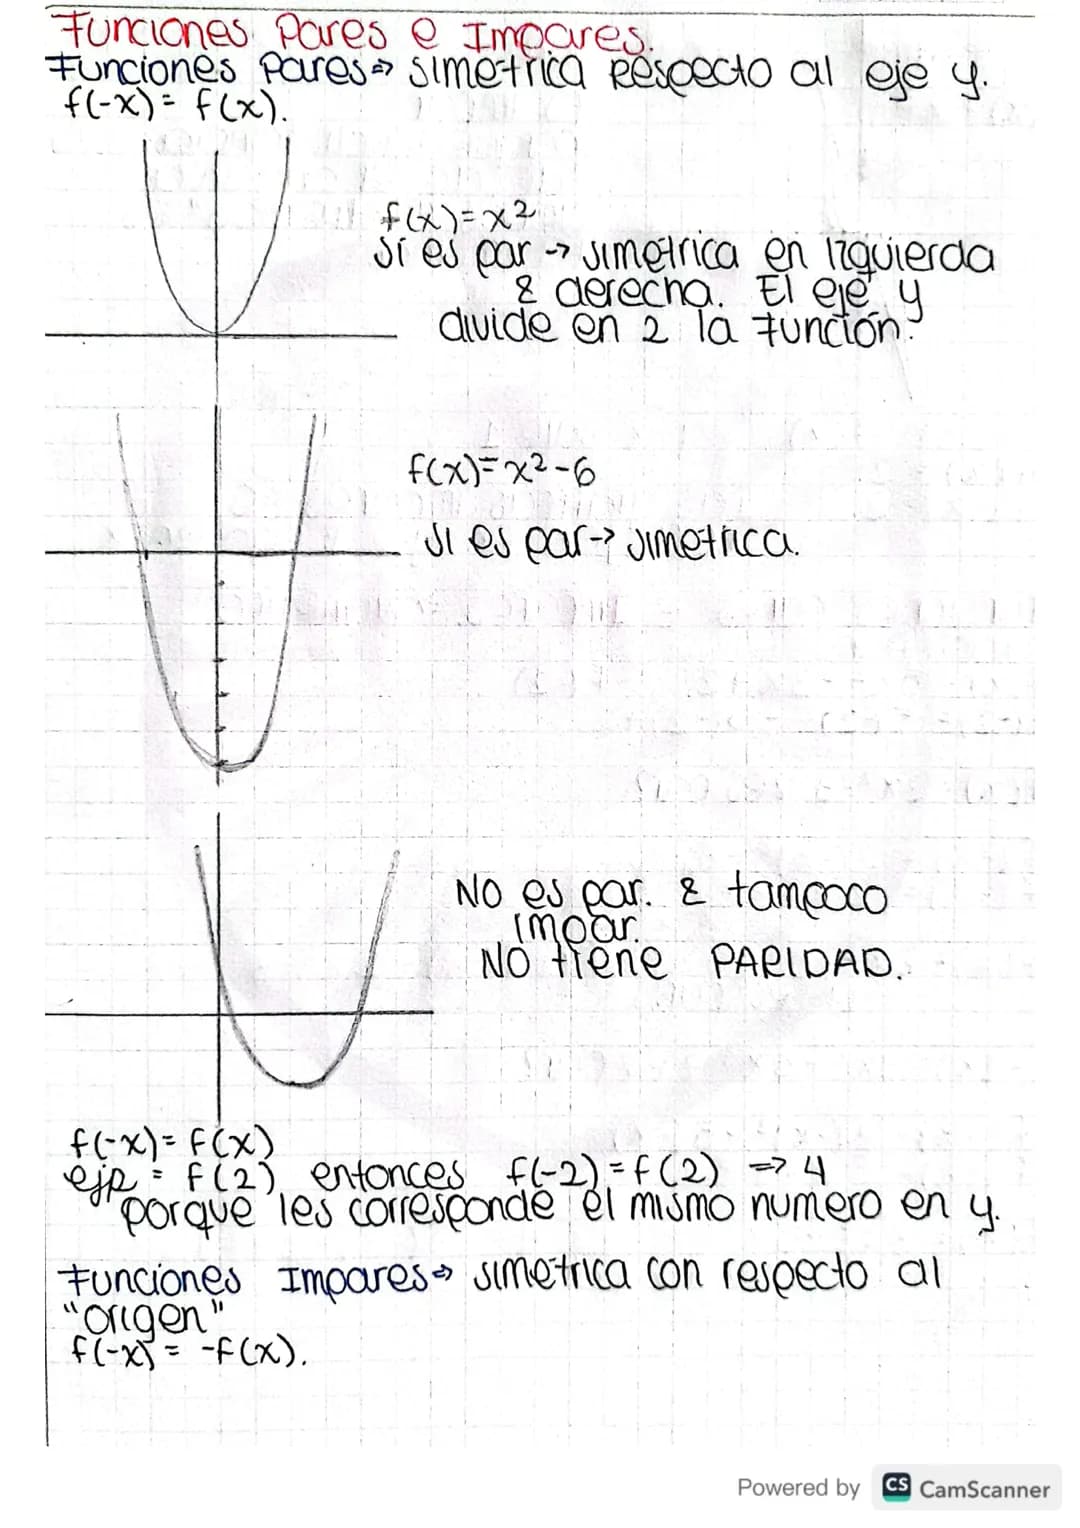 Funciones Pares e Impares.
Funciones Pares⇒ simetrica Respecto al eje y.
f(-x) = f(x).
f(x)=x²
Sí es par → simetrica en Izquierda
& derecha. El eje y
divide en 2 la función.
f(x)=x²-6
Si es par→ simetrica.
NO es par. & tampoco
impar.
NO tiene PARIDAD.
f(-x)= f(x)
ejp = f(2) entonces f(-2) = f(2) => 4
porque les corresponde el mismo numero en y.
Funciones Impares⇒ simetrica con respecto al
"origen"
f(-x) = -f(x).
Powered by CS CamScanner